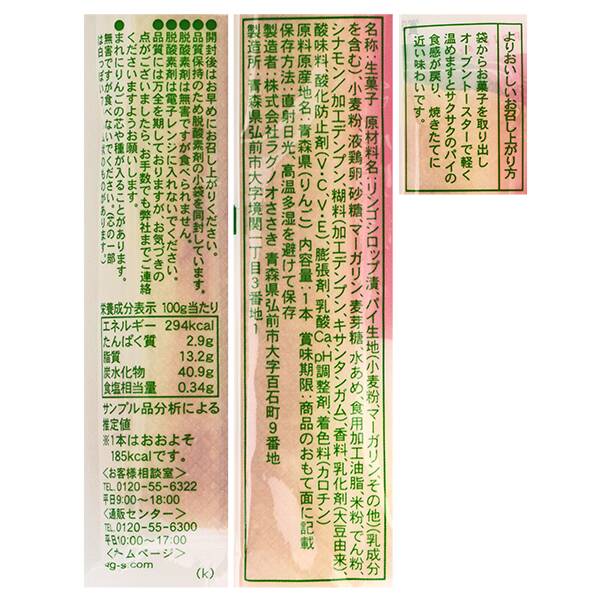 ●開封後はお早めにお召し上がりください。
●品質保持のため脱酸素剤の小袋を同封しています。
●脱酸素剤は無害ですが食べられません。
●脱酸素剤は電子レンジに入れないでください。
●品質には万全を期しておりますが、お気づきの
点がございましたら、お手数でも弊社までご連絡
くださいますようお願いします。
●まれにりんごの芯や種が入ることがあります。
無害ですが食べないでください。(芯の一部
は白っぽい
ものがあります。)
栄養成分表示 100g当たり
エネルギー 294kcal
たんぱく質 2.9g
脂質 13.2g
炭水化物 40.9g
食塩相当量 0.34g
サンプル品分析による
推定値
※1本はおおよそ
185kcalです。
<お客様相談室>
TEL.0120-55-6322
平日9:00~18:00
<通販センター>
TEL.0120-55-6300
平日10:00~17:00
<ホームページ>
g-s.com
(k)
名称:生菓子 原材料名:リンゴシロップ漬、パイ生地(小麦粉、マーガリン、その他)(乳成分
を含む)、小麦粉、液鶏卵、砂糖、マーガリン、麦芽糖、水あめ、食用加工油脂、米粉、でん粉、
シナモン/加工デンプン、糊料(加工デンプン、キサンタンガム)、香料、乳化剤(大豆由来)、
酸味料、酸化防止剤(V.C、V.E)、膨張剤、乳酸Ca、pH調整剤、着色料(カロチン)
原料原産地名:青森県(りんご) 内容量:1本 賞味期限:商品のおもて面に記載
保存方法:直射日光、高温多湿を避けて保存
製造者:株式会社ラグノオささき 青森県弘前市大字百石町9番地
製造所:青森県弘前市大字境関一丁目3番地1
よりおいしいお召し上がり方
袋からお菓子を取り出し
オーブントースターで軽く
温めますとサクサクのパイの
食感が戻り、焼きたてに
近い味わいです。